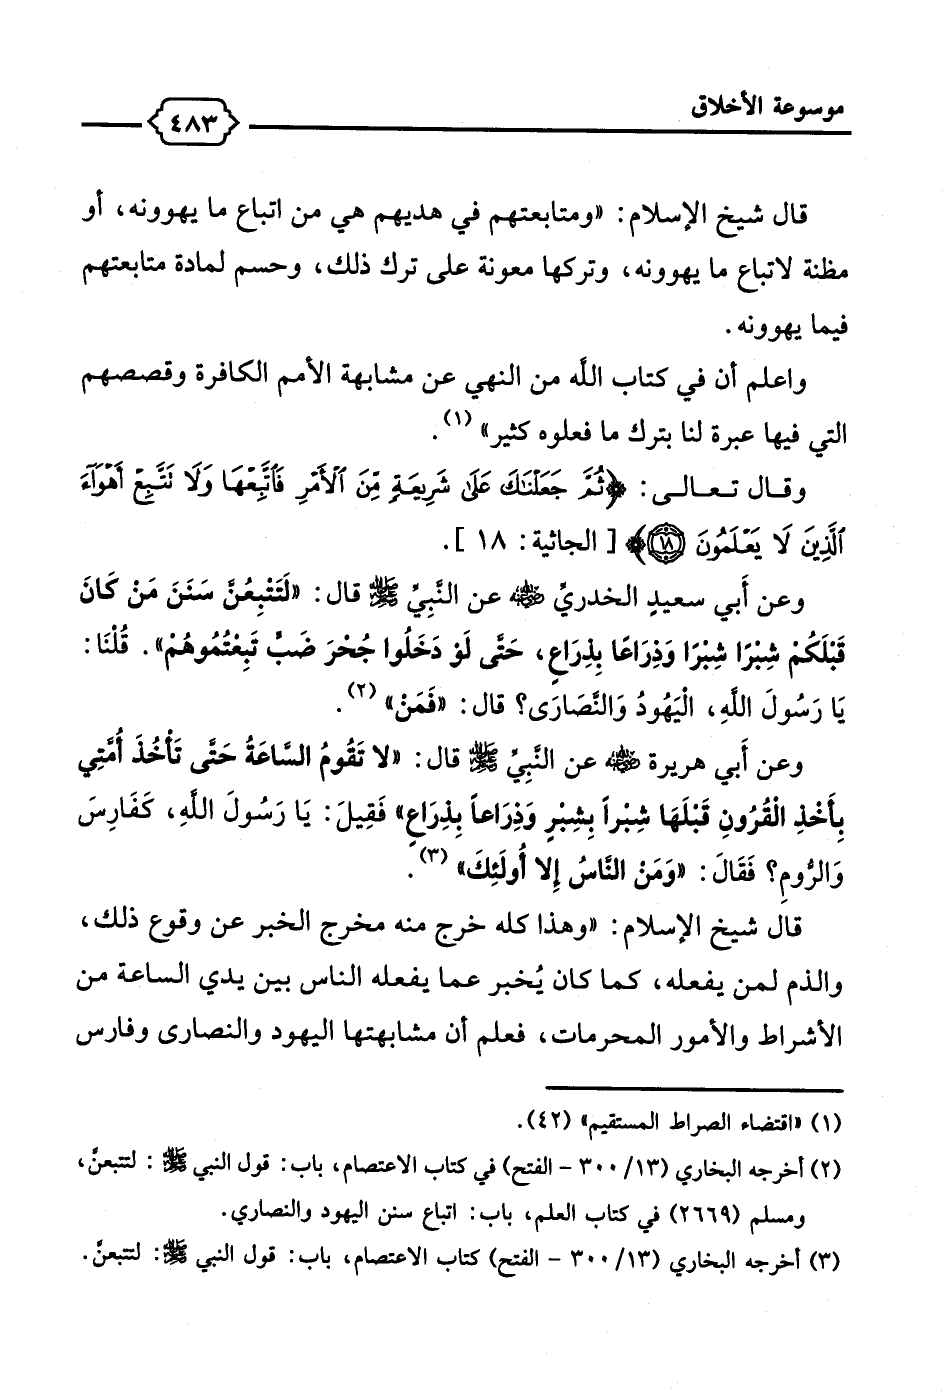 موسوعة الأخلاق
٤٨٣
قال شيخ الإسلام: «ومتابعتهم في هديهم هي من اتباع ما يهوونه، أو
مظنة لاتباع ما يهوونه، وتركها معونة على ترك ذلك، وحسم لمادة متابعتهم
فيما يهوونه.
واعلم أن في كتاب اللَّه من النهي عن مشابهة الأمم الكافرة وقصصهم
التي فيها عبرة لنا بترك ما فعلوه كثير» (١).
وقال تعالى: ﴿ثُمَّ جَعَلْنَٰكَ عَلَىٰ شَرِيعَةٍ مِّنَ ٱلْأَمْرِ فَٱتَّبِعْهَا وَلَا نَتَّبِعْ أَهْوَآءَ
ٱلَّذِينَ لَا يَعْلَمُونَ ١٨﴾ [ الجاثية: ١٨ ].
وعن أَبي سعيدٍ الخدريِّ رضي الله عنه عن النَّبيِّ ﷺ قال: «لَتَتْبِعُنَّ سَنَنَ مَنْ كَانَ
قَبْلَكُمْ شِبْرًا شِبْرًا وَذِرَاعًا بِذِرَاعٍ، حَتَّى لَوْ دَخَلُوا جُحْرَ ضَبٍّ تَبِعْتُمُوهُمْ». قُلْنَا:
يَا رَسُولَ اللَّهِ، الْيَهُودُ وَالنَّصَارَى؟ قال: «فَمَنْ» (٢).
وعن أَبي هريرة رضي الله عنه عن النَّبيِّ ﷺ قال: «لا تَقُومُ السَّاعَةُ حَتَّى تَأْخُذَ أُمَّتِي
بِأَخْذِ الْقُرُونِ قَبْلَهَا شِبْراً بِشِبْرٍ وَذِرَاعاً بِذِرَاعٍ» فَقِيلَ: يَا رَسُولَ اللَّهِ، كَفَارِسَ
وَالرُّومِ؟ فَقَالَ: «وَمَنْ النَّاسُ إِلا أُولَئِكَ» (٣).
قال شيخ الإسلام: «وهذا كله خرج منه مخرج الخبر عن وقوع ذلك،
والذم لمن يفعله، كما كان يُخبر عما يفعله الناس بين يدي الساعة من
الأشراط والأمور المحرمات، فعلم أن مشابهتها اليهود والنصارى وفارس
(١) «اقتضاء الصراط المستقيم» (٤٢).
(٢) أخرجه البخاري (١٣/ ٣٠٠ - الفتح) في كتاب الاعتصام، باب: قول النبي ﷺ : لتتبعنَّ،
ومسلم (٢٦٦٩) في كتاب العلم، باب: اتباع سنن اليهود والنصارى.
(٣) أخرجه البخاري (١٣/ ٣٠٠ - الفتح) كتاب الاعتصام، باب: قول النبي ﷺ: لتتبعنَّ.